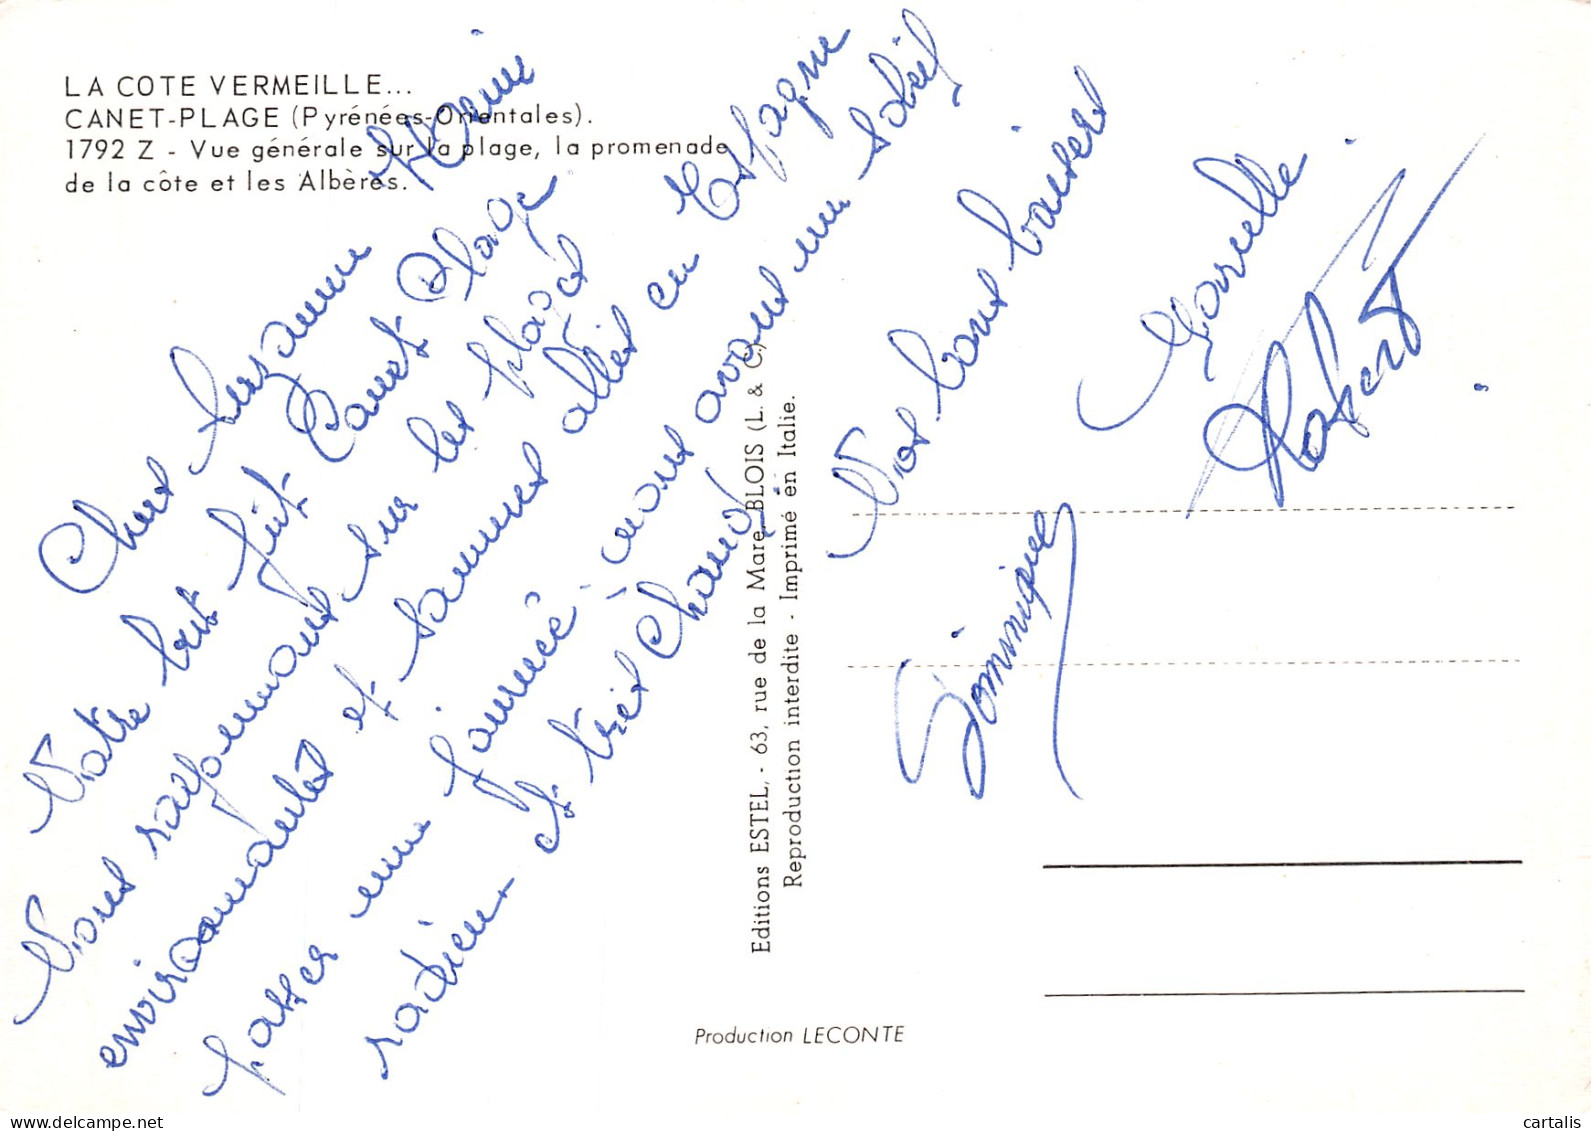 LA COTE VERMEILLE...
CANET-PLAGE (Pyrénées-Orientales).
1792 Z - Vue générale sur la plage, la promenade
de la côte et les Albères.
Chers Suzanne
Notre but fut Canet Plage
Nous rayonnons sur les plages
environnantes et sommes allés en Espagne
passer une journée. nous avons un soleil
radieux et très chaud.
Nos bons baisers
Marcelle.
Robert
Dominique
Editions ESTEL, - 63, rue de la Mare, BLOIS (L. & C.)
Reproduction interdite - Imprimé en Italie.
Production LECONTE
cartalis
delcampe.net